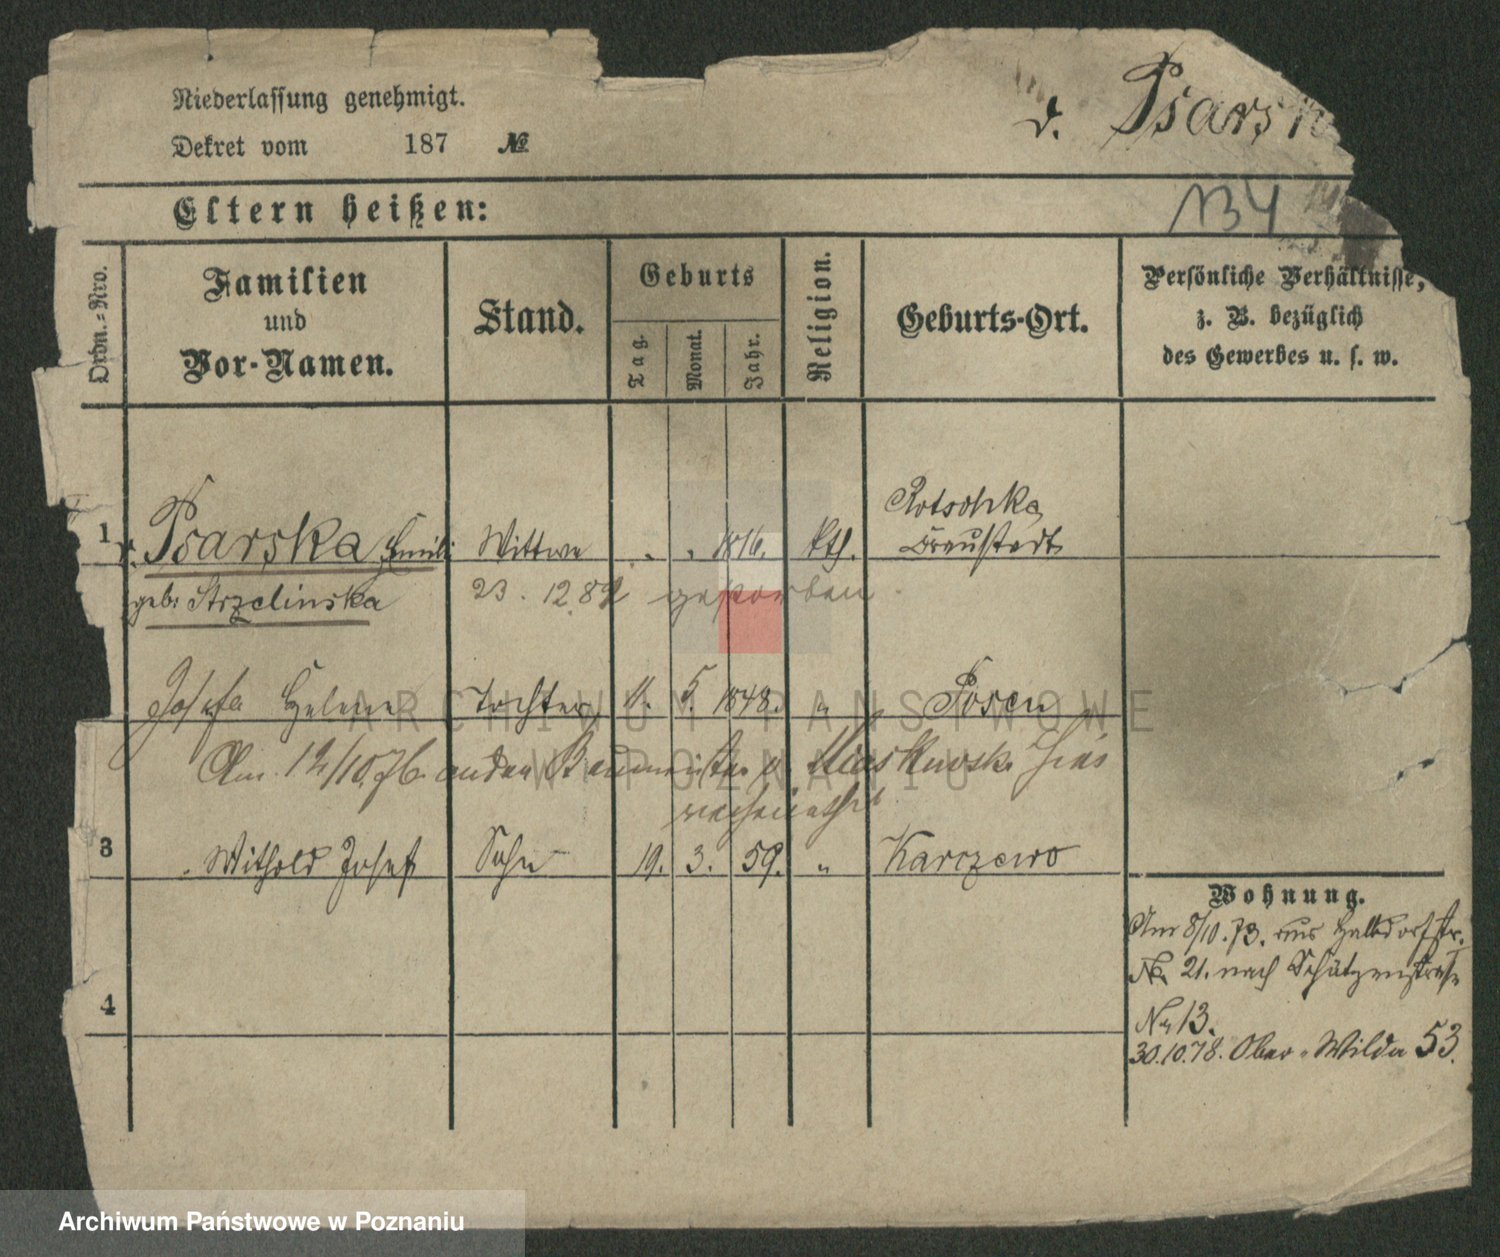 Niederlassung genehmigt.
Dekret vom 187 №
v. Psarsk
Eltern heißen:
134
Ordn.-Nro.
Familien
und
Vor-Namen.
Stand.
Geburts
Tag.
Monat.
Jahr.
Religion.
Geburts-Ort.
Persönliche Verhältnisse,
z. B. bezüglich
des Gewerbes u. s. w.
1 v. Psarska Emili Wittwe " " 1816. kth. Rotschka
Fraustadt
geb: Strzelinska 23. 12.82 gestorben
Josefa Helene Tochter 11. 5. 1848. " Posen
Am 12/10.76 an den Baumeister v.
verheirathet
3 Withold Josef Sohn 19. 3. 59. " Karczewo
4
Wohnung.
Am 8/10.73. aus Halbdorfstr.
No. 21. nach Schützenstrasse
Nr 13.
30.10.78. Ober-Wilda 53.
ARCHIWUM PAŃSTWOWE
W POZNANIU
Archiwum Państwowe w Poznaniu